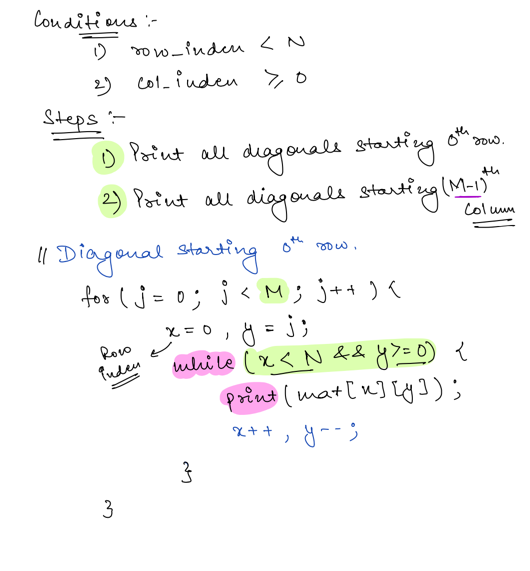 Conditions :-
1) row_index < N
2) col_index >= 0
Steps :-
1) Print all diagonals starting 0th row.
2) Print all diagonals starting (M-1)th
Column
// Diagonal starting 0th row.
for ( j = 0 ; j < M ; j++ ) {
x = 0 , y = j ;
Row
index
while ( x < N && y >= 0 ) {
print ( mat [ x ] [ y ] ) ;
x++ , y-- ;
}
}